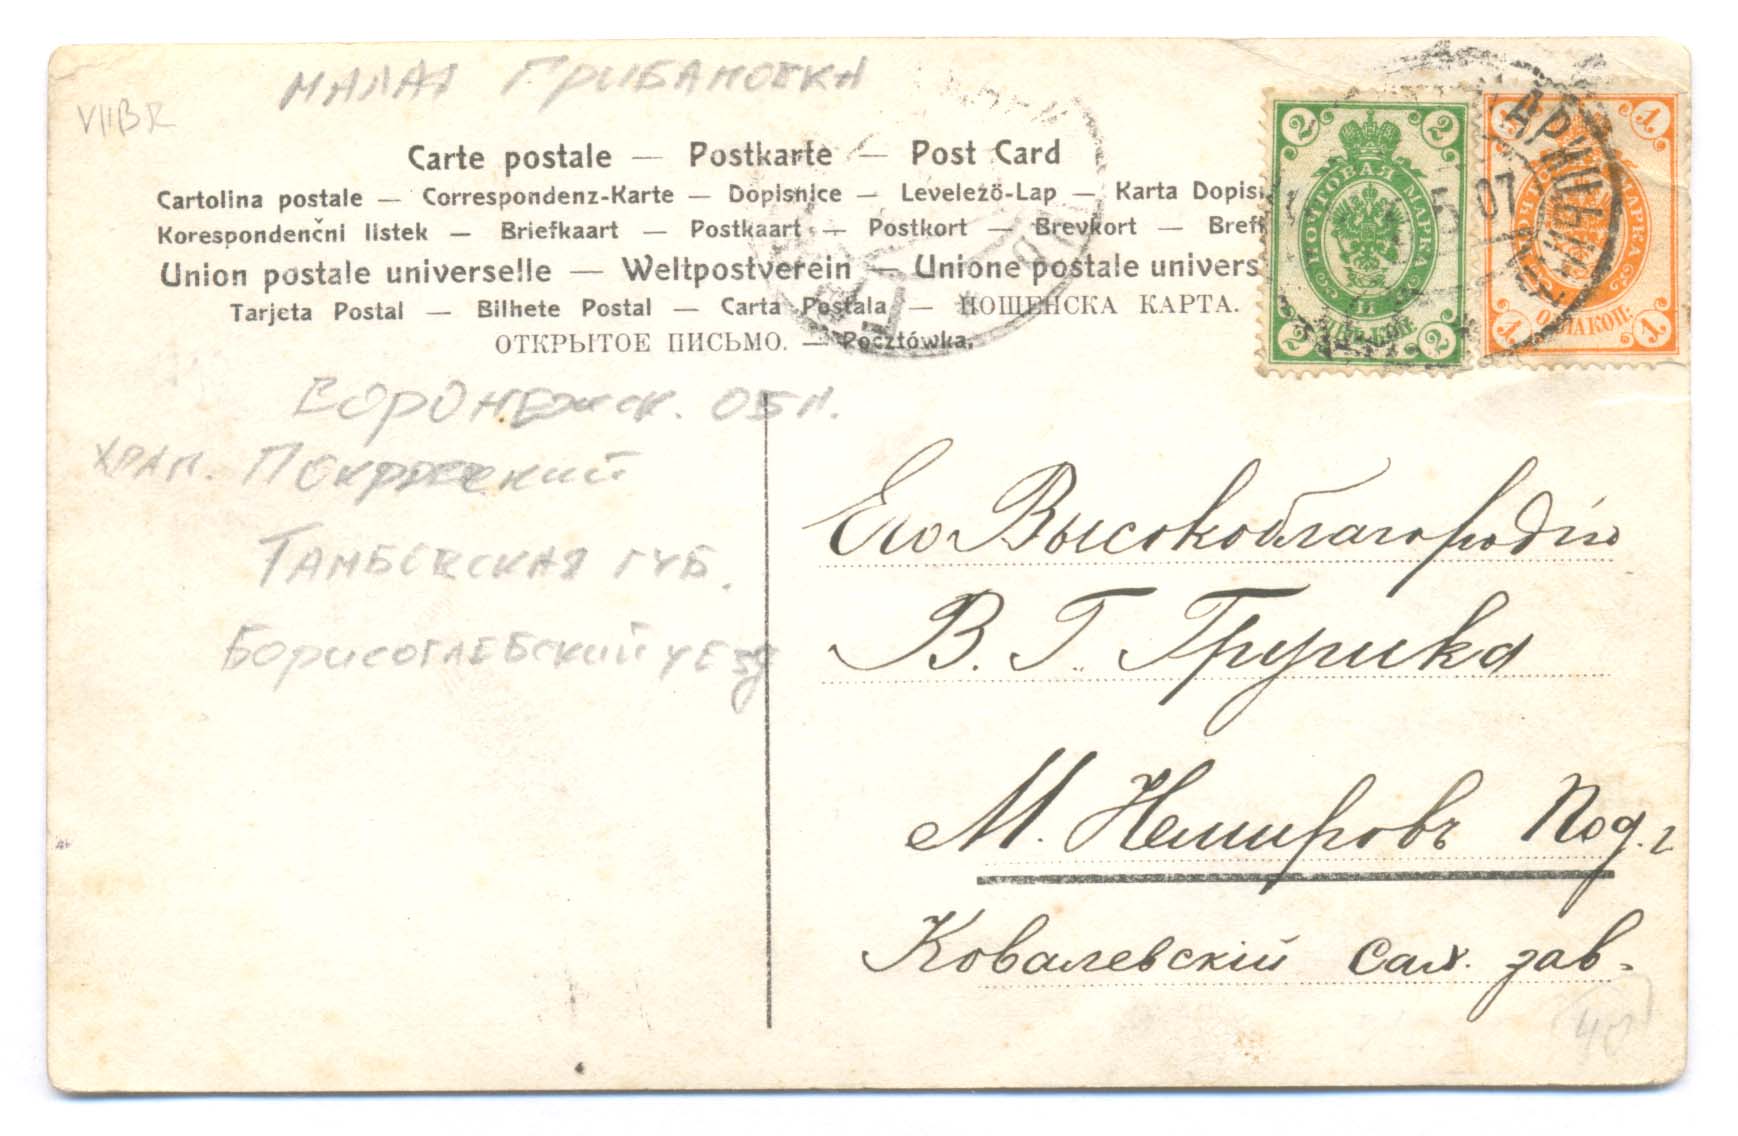 МАЛАЯ ГРИБАНОВКА
VIIBR
Carte postale — Postkarte — Post Card
Cartolina postale — Correspondenz-Karte — Dopisnice — Levelező-Lap — Karta Dopisn
Korespondenčni listek — Briefkaart — Postkaart — Postkort — Brevkort — Brefk
Union postale universelle — Weltpostverein — Unione postale univers
Tarjeta Postal — Bilhete Postal — Carta Postala — ПОЩЕНСКА КАРТА.
ОТКРЫТОЕ ПИСЬМО. — Pocztówka.
2 2
ПОЧТОВАЯ МАРКА
2 2
1 1
МАРКА
ОДНА КОП.
1 1
5 07
ВОРОНЕЖСК. ОБЛ.
ХРАМ. Покровский
ТАМБОВСКАЯ ГУБ.
БОРИСОГЛЕБСКИЙ УЕЗД
Его Высокоблагородію
В. Г. Грушка
М. Немировъ Под. г
Ковалевскій Сах. зав.
40